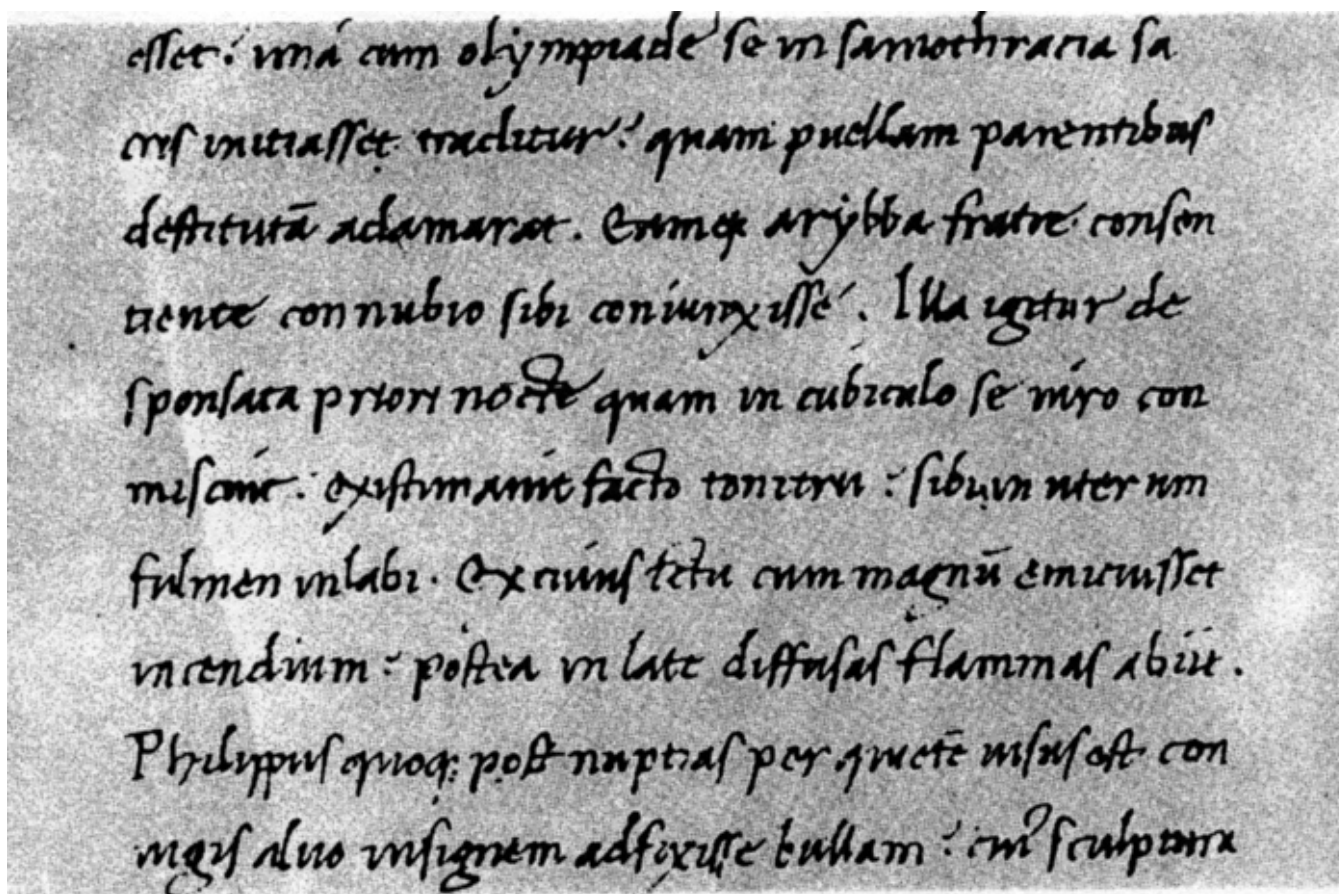 esset: una cum olympiade se in samothracia sa
cris initiasset traditur: quam puellam parentibus
destitutā adamarat. Eamq; arybba fratre consen
tiente connubio sibi coniunxisse. Illa igitur de
sponsata priori nocte quam in cubiculo se viro con
miscuit: existimavit facto tonitru: sibi in uterum
fulmen inlabi. Ex cuius ictu cum magnū emicuisset
incendium: postea in late diffusas flammas abiit.
Philippus quoq; post nuptias per quietē visus est con
iugis alvo insignem adfixisse bullam: cui sculptura